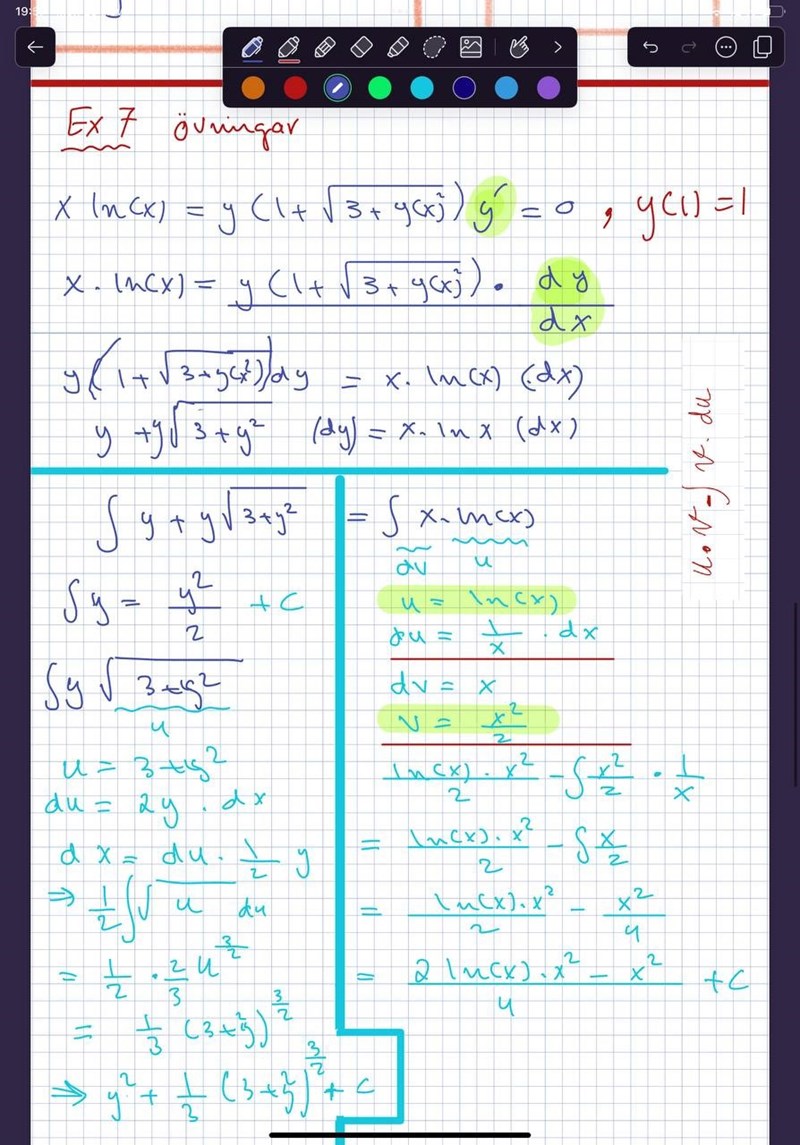 19:
Ex 7 övningar
x ln(x) = y (1 + √(3 + y(x)²)) y' = 0 , y(1) = 1
x · ln(x) = y (1 + √(3 + y(x)²)) · dy/dx
y (1 + √(3 + y(x²))) dy = x · ln(x) (·dx)
y + y√(3 + y²) (dy) = x · ln x (dx)
∫ y + y√(3+y²) = ∫ x · ln(x)
dv u
∫y = y²/2 + C
∫y √(3+y²)
u
u = 3+y²
du = 2y · dx
dx = du · 1/2 y
⇒ 1/2 ∫√u du
= 1/2 · 2/3 u^(3/2)
= 1/3 (3+y²)^(3/2)
⇒ y² + 1/3 (3+y²)^(3/2) + C
u = ln(x)
du = 1/x · dx
dv = x
v = x²/2
ln(x) · x²/2 - ∫ x²/2 · 1/x
= ln(x) · x²/2 - ∫ x/2
= ln(x) · x²/2 - x²/4
= (2 ln(x) · x² - x²)/4 + C
u · v - ∫ v · du